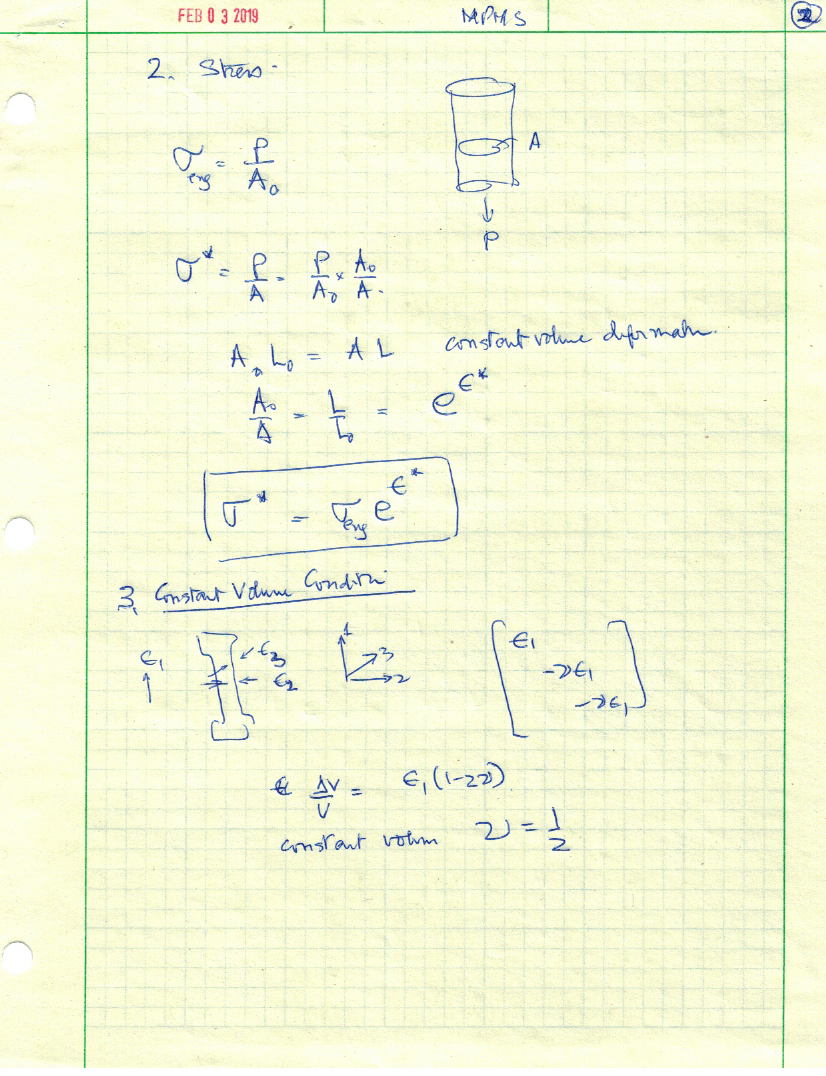 FEB 03 2019 MPMS 2
2. Stress.
A
σ_eng = P/A₀
P
σ* = P/A = P/A₀ × A₀/A.
A₀ L₀ = A L constant volume deformation.
A₀/A = L/L₀ = e^ϵ*
σ* = σ_eng e^ϵ*
3. Constant Volume Condition
ϵ₁ ϵ₃ ϵ₂ 1 3 2 [ϵ₁ -νϵ₁ -νϵ₁]
ΔV/V = ϵ₁(1-2ν)
constant volum ν = 1/2